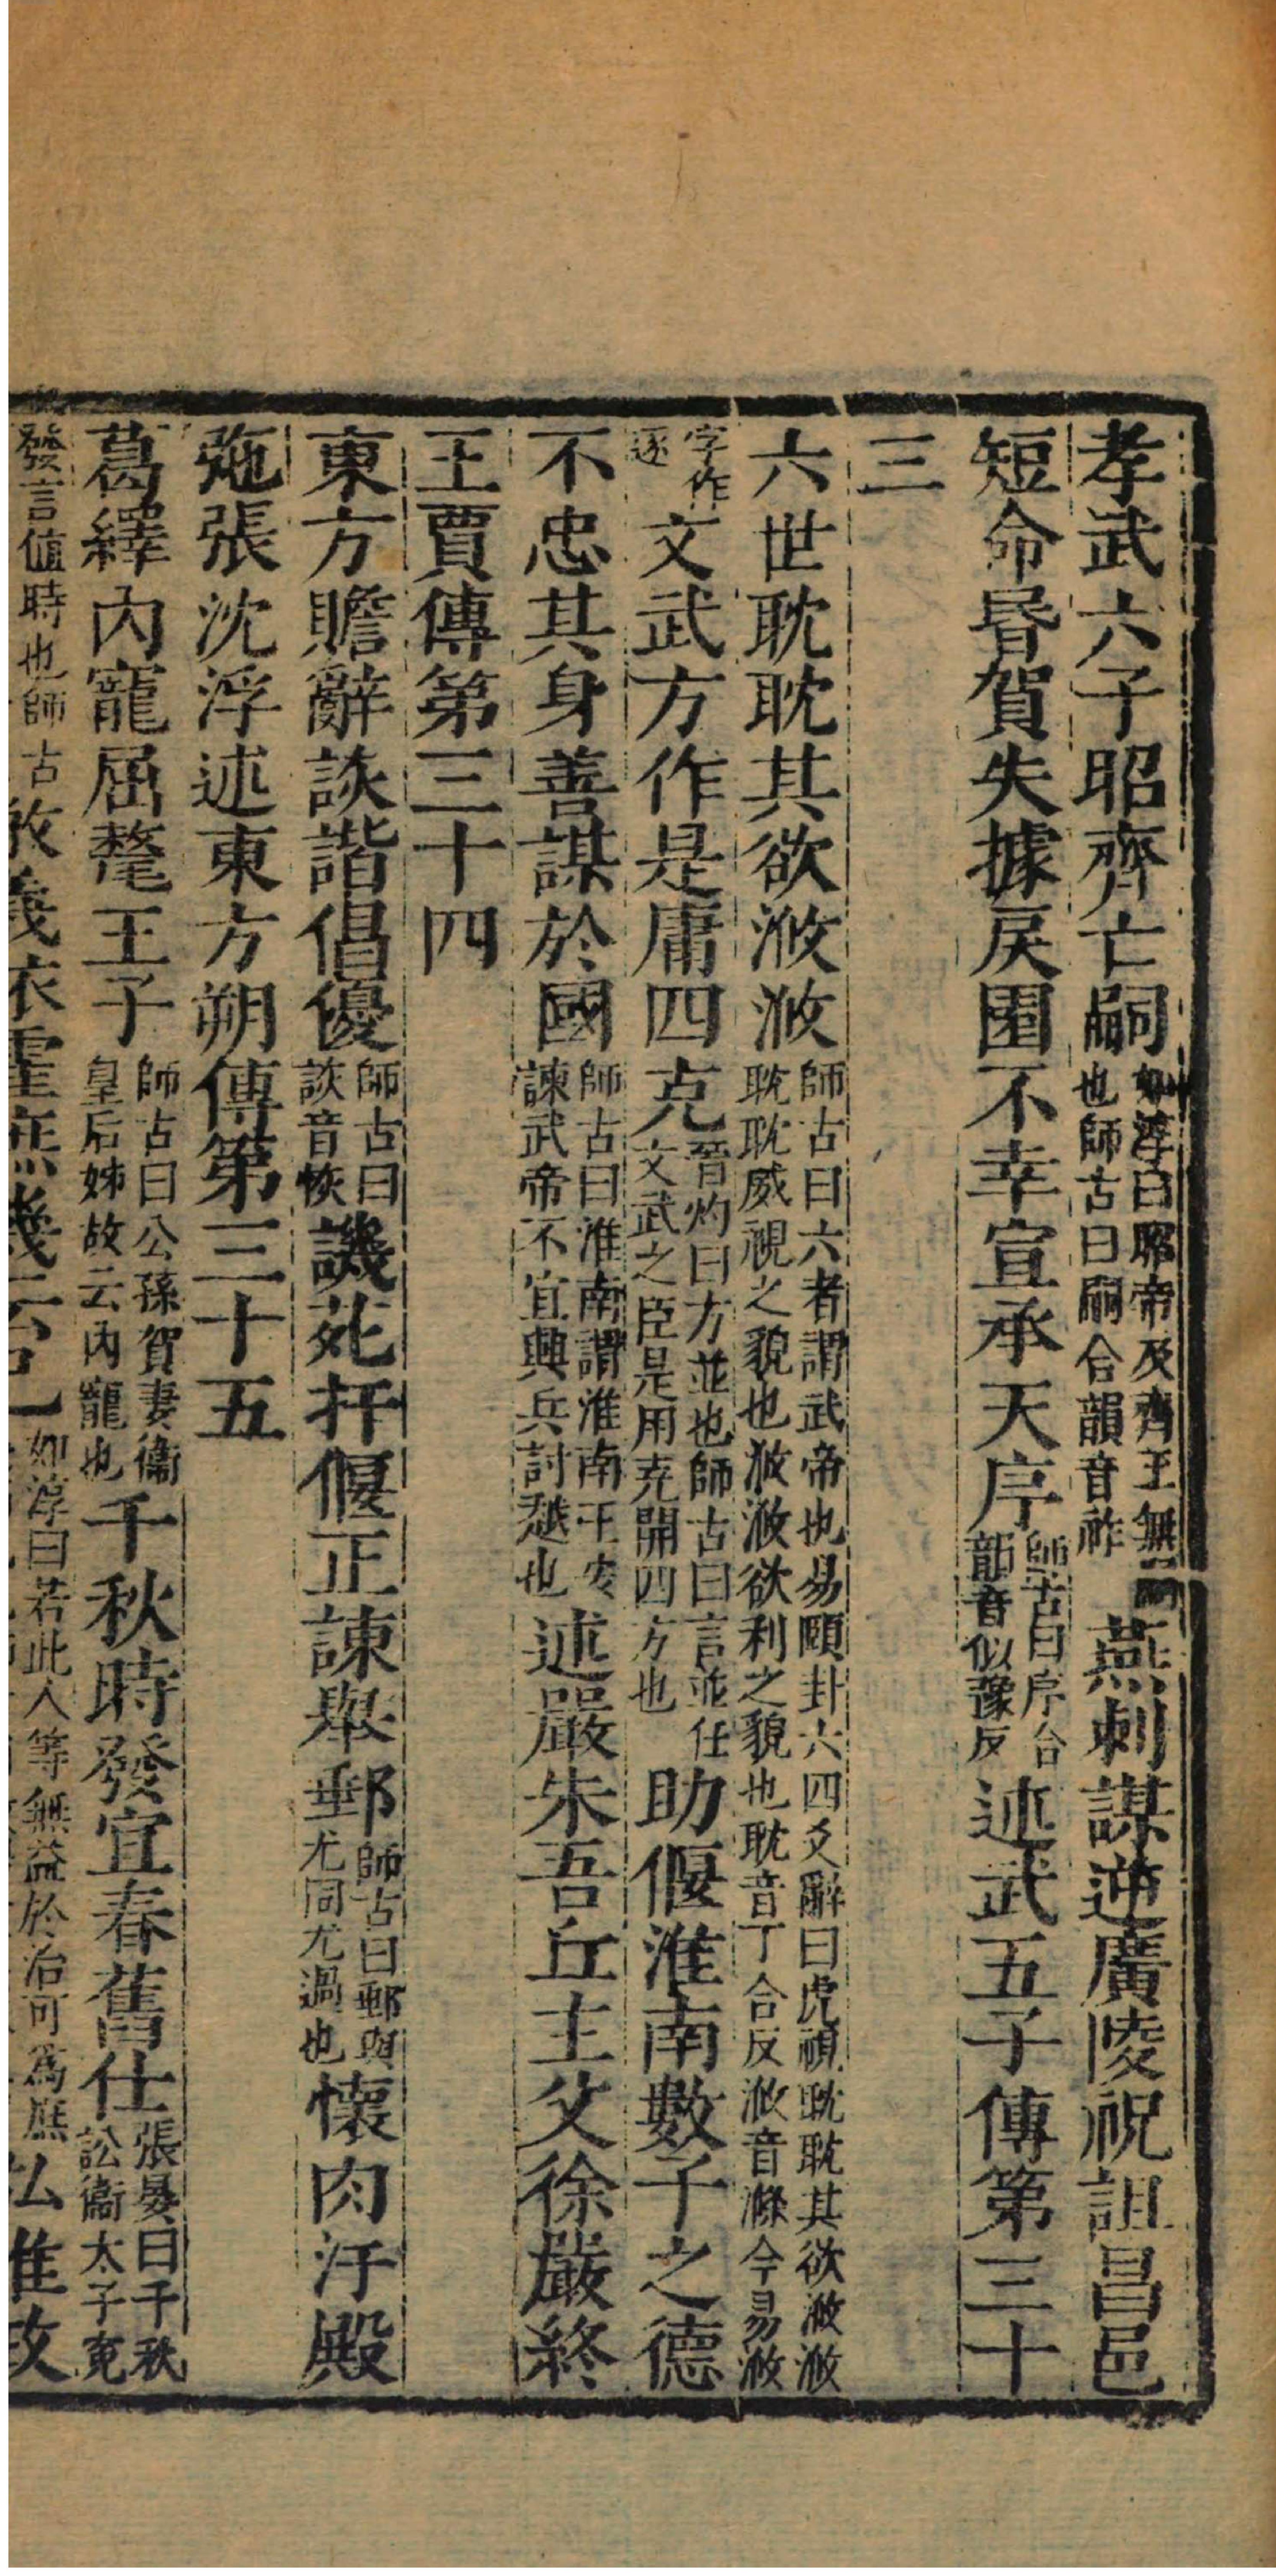 孝武六子昭齊亡嗣如淳曰昭帝及齊王無嗣也師古曰嗣合韻音祚燕剌謀逆廣陵祝詛昌邑
短命昬賀失據戾園不幸宣承天序師古曰序合韻音似豫反述武五子傳第三十
三
六世耽耽其欲浟浟師古曰六者謂武帝也易頤卦六四爻辭曰虎視耽耽其欲浟浟耽耽威視之貌也浟浟欲利之貌也耽音丁合反浟音滌今易浟
字作逐文武方作是庸四克晉灼曰方並也師古曰言並任文武之臣是用克開四方也助偃淮南數子之德
不忠其身善謀於國師古曰淮南謂淮南王安諫武帝不宜興兵討越也述嚴朱吾丘主父徐嚴終
王賈傳第三十四
東方贍辭詼諧倡優師古曰詼音恢譏苑扞偃正諫舉郵師古曰郵與尤同尤過也懷肉汙殿
㢮張沈浮述東方朔傳第三十五
葛繹內寵屈氂王子師古曰公孫賀妻衞皇后姊故云內寵也千秋時發宜春舊仕張晏曰千秋訟衞太子寃
發言値時也師古敞義依霍庶幾云已如淳曰若此人等無益於治可爲庶弘惟政